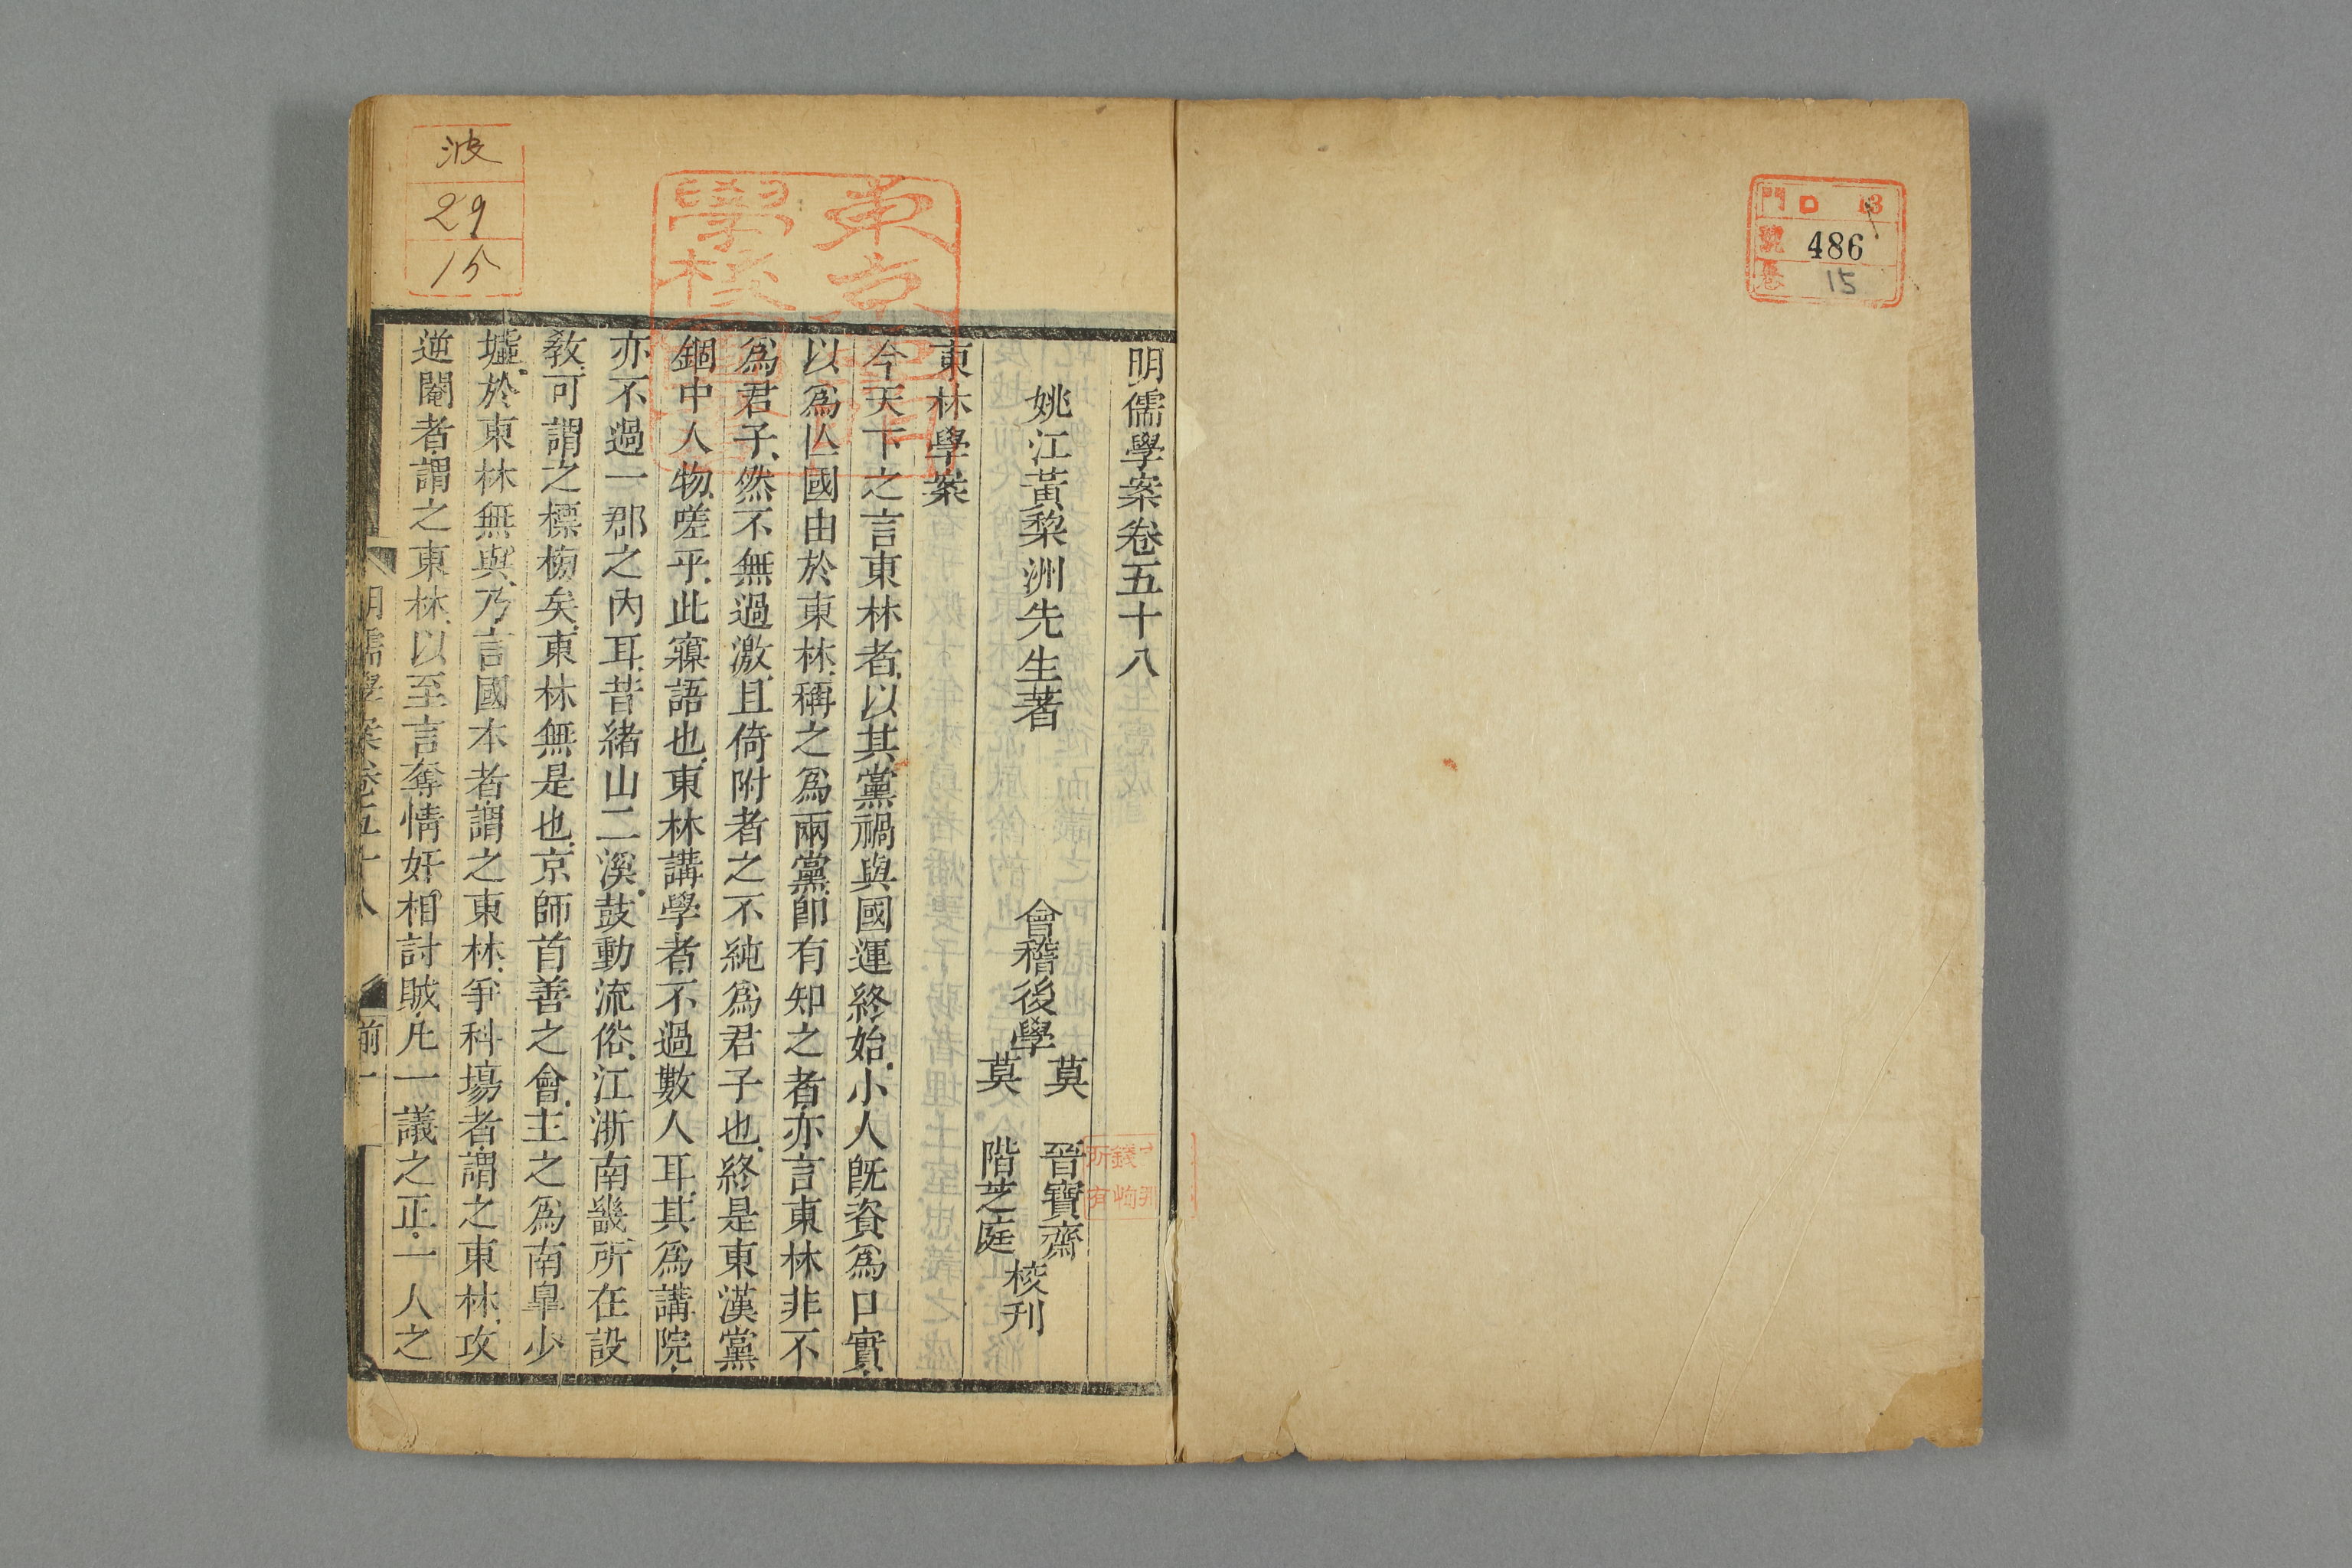 門 口 13
號 486
卷 15
明儒學案卷五十八
姚江黃棃洲先生著
會稽後學
莫 晉寶齋
莫 階芝庭
校刊
東林學案
今天下之言東林者以其黨禍與國運終始小人旣資爲口實
以爲亾國由於東林稱之爲兩黨卽有知之者亦言東林非不
爲君子然不無過激且倚附者之不純爲君子也終是東漢黨
錮中人物嗟乎此寱語也東林講學者不過數人耳其爲講院
亦不過一郡之內耳昔緒山二溪鼓動流俗江浙南畿所在設
敎可謂之標榜矣東林無是也京師首善之會主之爲南臯少
墟於東林無與乃言國本者謂之東林爭科塲者謂之東林攻
逆閹者謂之東林以至言奪情奸相討賊凡一議之正一人之
明儒學案卷五十八
前一
波
29
15
所有